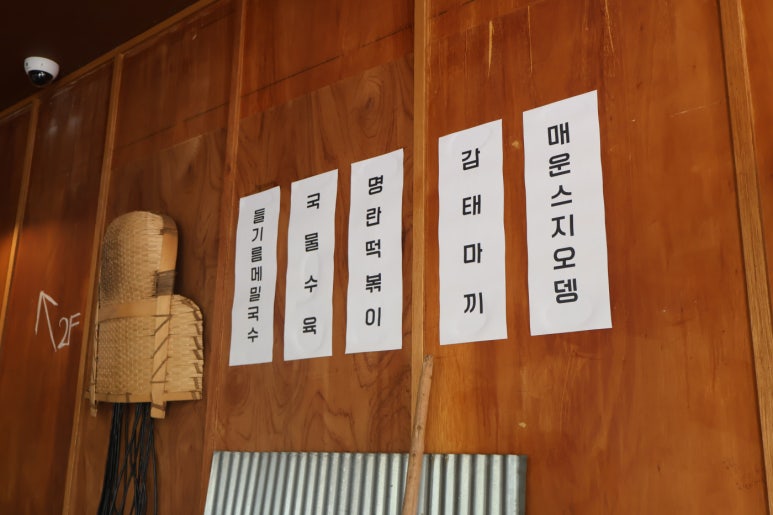 들기름메밀국수
국물수육
명란떡볶이
감태마끼
매운스지오뎅
2F